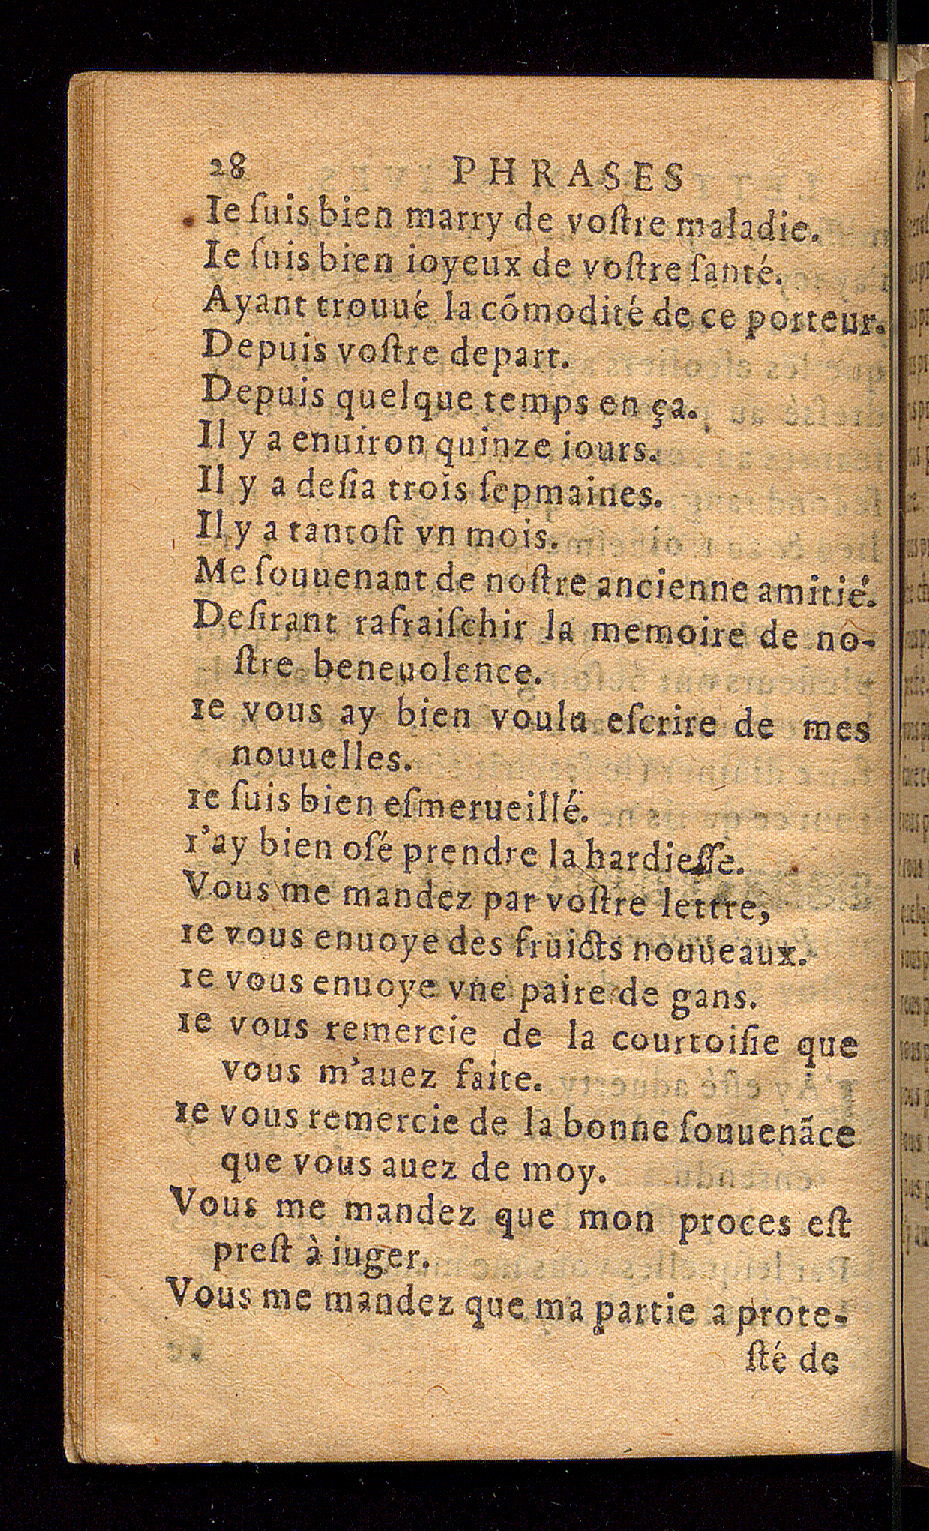 28 PHRASES
Ie ſuis bien marry de voſtre maladie.
Ie ſuis bien ioyeux de voſtre ſanté.
Ayant trouué la cõmodité de ce porteur.
Depuis voſtre depart.
Depuis quelque temps en ça.
Il y a enuiron quinze iours.
Il y a deſia trois ſepmaines.
Il y a tantoſt vn mois.
Me ſouuenant de noſtre ancienne amitié.
Deſirant rafraiſchir la memoire de no-
ſtre beneuolence.
Ie vous ay bien voulu eſcrire de mes
nouuelles.
Ie ſuis bien eſmerueillé.
I'ay bien oſé prendre la hardieſſe.
Vous me mandez par voſtre lettre,
Ie vous enuoye des fruicts nouueaux.
Ie vous enuoye vne paire de gans.
Ie vous remercie de la courtoiſie que
vous m'auez faite.
Ie vous remercie de la bonne ſouuenãce
que vous auez de moy.
Vous me mandez que mon proces eſt
preſt à iuger.
Vous me mandez que ma partie a prote-
ſté de